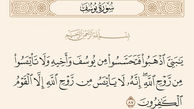 سُورَةُ يُوسُفَ
بِسْمِ اللَّهِ الرَّحْمَٰنِ الرَّحِيمِ
يَٰبَنِىَّ ٱذْهَبُوا۟ فَتَحَسَّسُوا۟ مِن يُوسُفَ وَأَخِيهِ وَلَا تَا۟يْـَٔسُوا۟
مِن رَّوْحِ ٱللَّهِ إِنَّهُۥ لَا يَا۟يْـَٔسُ مِن رَّوْحِ ٱللَّهِ إِلَّا ٱلْقَوْمُ
ٱلْكَٰفِرُونَ ٨٧